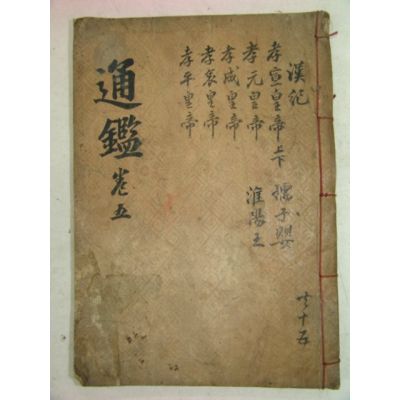 漢紀
孝宣皇帝 上下
孝元皇帝
孝成皇帝
孝哀皇帝
孝平皇帝
孺子嬰
淮陽王
通鑑
卷五
共十五